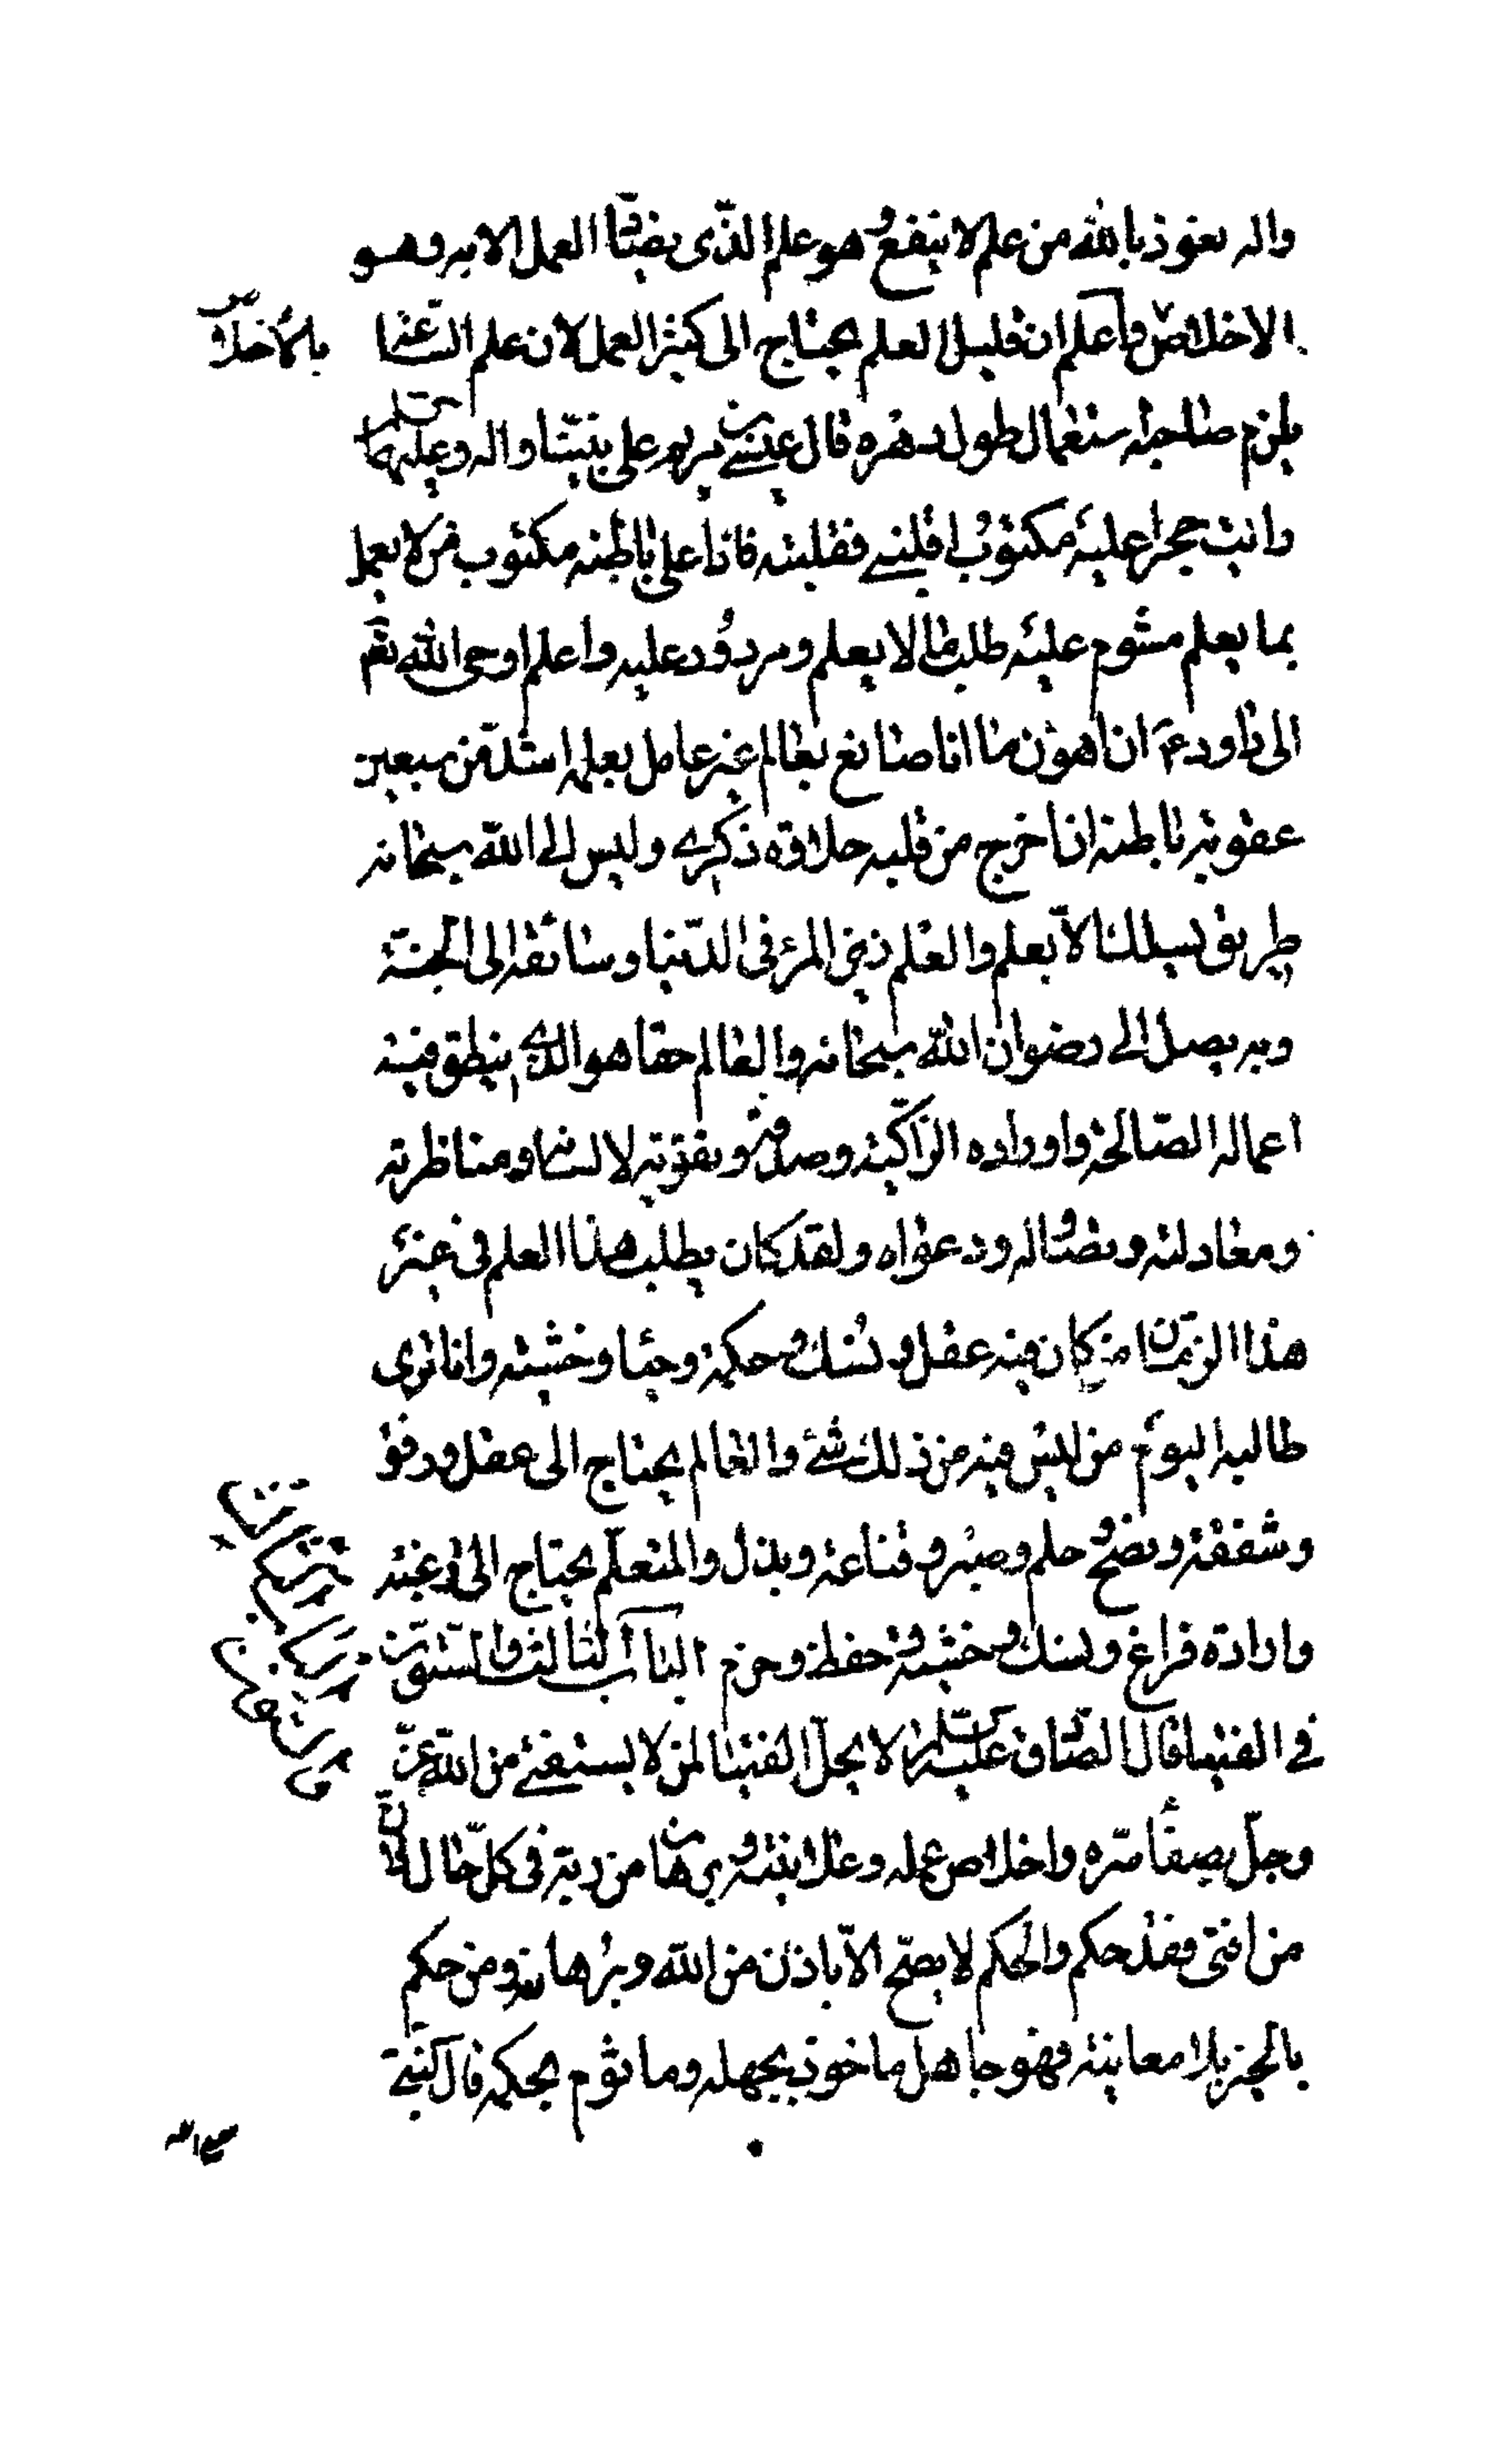 واله نعوذ بالله من علم لا ينفع وهو علم الذي يضاد العمل الا به وهو
الاخلاص واعلم ان قليل العلم يحتاج الى كثير العمل لان علم الساعة
بالاخلاص
يلزم صاحبه استعمال طول دهره قال عيسى بن مريم على نبينا واله وعليهما السلام
رايت حجرا عليه مكتوب اقلبني فقلبته فاذا على باطنه مكتوب من لا يعمل
بما يعلم مشوم عليه طلب ما لا يعلم ومردود عليه واعلم اوحى الله تعالى
الى داود ع ان اهون ما انا صانع بعالم غير عامل بعلمه اشد من سبعين
عقوبة باطنة ان اخرج من قلبه حلاوة ذكري وليس الى الله سبحانه
طريق يسلك الا بعلم والعلم زين المرء في الدنيا وسائقه الى الجنة
وبه يصل الى رضوان الله سبحانه والعالم حقا هو الذي ينطق فيه
اعماله الصالحة واوراده الزاكية وصدقه وتقويه لا لسانه ومناظرته
ومعادلته وتصاوله ودعواه ولقد كان يطلب هذا العلم في غير
هذا الزمان من كان فيه عقل ونسك وحكمة وحياء وخشية وانا نرى
طالبه اليوم من ليس فيه من ذلك شئ والعالم يحتاج الى عقل ورفق
وشفقة ونصح وحلم وصبر وقناعة وبذل والمتعلم يحتاج الى رغبة
وارادة وفراغ ونسك وخشية وحفظ وحزم الباب الثالث والستون
في الفتيا قال الصادق عليه السلام لا يحل الفتيا لمن لا يستفتي من الله عز
وجل بصفاء سره واخلاص عمله وعلانيته وبرهان من ربه في كل حال لان
من افتى فقد حكم والحكم لا يصح الا باذن من الله وبرهانه ومن حكم
بالخبر بلا معاينة فهو جاهل ماخوذ بجهله وماثوم بحكمه قال النبي